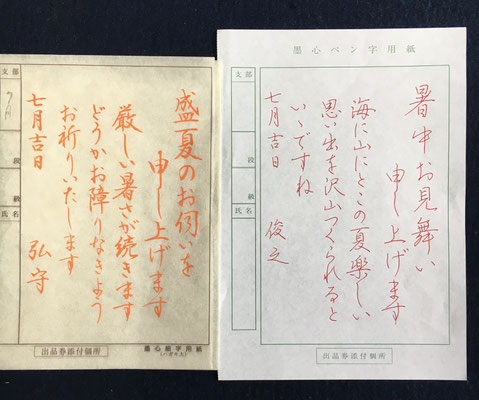 墨心ペン字用紙
支部
段
級
氏名
暑中お見舞い
申し上げます
海に山にとこの夏楽しい
思い出を沢山つくられると
いいですね
七月吉日
俊之
出品券添付個所
支部
7月
段
級
氏名
盛夏のお伺いを
申し上げます
厳しい暑さが続きます
どうかお障りなきよう
お祈りいたします
七月吉日
弘守
出品券添付個所
墨心細字用紙